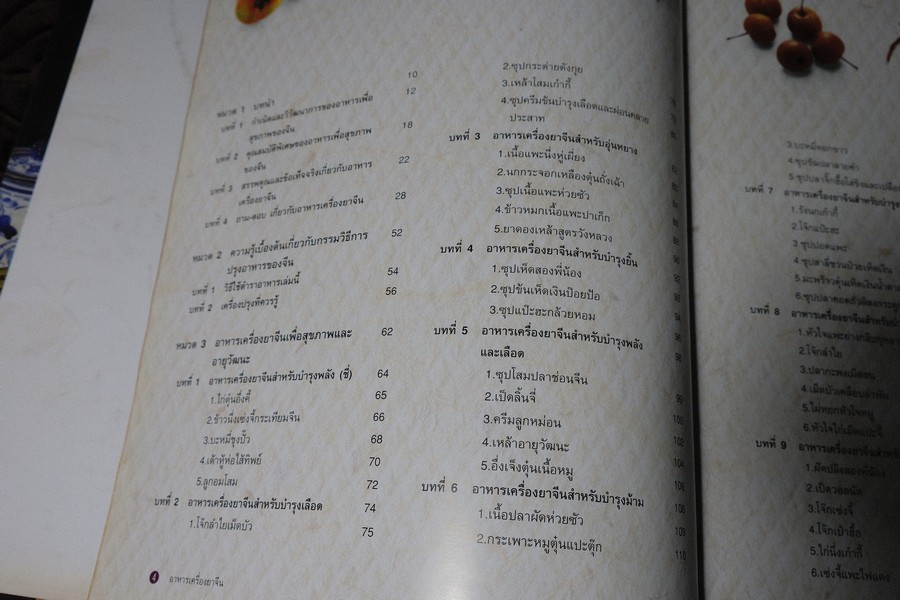 หมวด 1 บทนำ 10
บทที่ 1 กำเนิดและวิวัฒนาการของอาหารเพื่อ 12
สุขภาพของจีน
บทที่ 2 คุณสมบัติพิเศษของอาหารเพื่อสุขภาพ 18
ของจีน
บทที่ 3 สรรพคุณและข้อเท็จจริงเกี่ยวกับอาหาร 22
เครื่องยาจีน
บทที่ 4 ถาม-ตอบ เกี่ยวกับอาหารเครื่องยาจีน 28
หมวด 2 ความรู้เบื้องต้นเกี่ยวกับกรรมวิธีการ 52
ปรุงอาหารของจีน
บทที่ 1 วิธีใช้ตำราอาหารเล่มนี้ 54
บทที่ 2 เครื่องปรุงที่ควรรู้ 56
หมวด 3 อาหารเครื่องยาจีนเพื่อสุขภาพและ 62
อายุวัฒนะ
บทที่ 1 อาหารเครื่องยาจีนสำหรับบำรุงพลัง (ชี่) 64
1.ไก่ตุ๋นอึ่งคี้ 65
2.ข้าวนึ่งเซ่งจี้กระเทียมจีน 66
3.บะหมี่ซุงปั๊ว 68
4.เต้าหู้ห่อไส้ทิพย์ 70
5.ลูกอมโสม 72
บทที่ 2 อาหารเครื่องยาจีนสำหรับบำรุงเลือด 74
1.โจ๊กลำไยเม็ดบัว 75
4 อาหารเครื่องยาจีน
2.ซุปกระต่ายตังกุย
3.เหล้าโสมเก๋ากี้
4.ซุปครีมข้นบำรุงเลือดและผ่อนคลาย
ประสาท
บทที่ 3 อาหารเครื่องยาจีนสำหรับอุ่นหยาง
1.เนื้อแพะนึ่งหู่เผี่ยง
2.นกกระจอกเหลืองตุ๋นถั่งเฉ้า
3.ซุปเนื้อแพะห่วยซัว
4.ข้าวหมกเนื้อแพะปาเก็ก
5.ยาดองเหล้าสูตรวังหลวง
บทที่ 4 อาหารเครื่องยาจีนสำหรับบำรุงยิ้น 90
1.ซุปเห็ดสองพี่น้อง 92
2.ซุปข้นเห็ดเงินป้อยป้อ 93
3.ซุปแป๊ะฮะกล้วยหอม 94
บทที่ 5 อาหารเครื่องยาจีนสำหรับบำรุงพลัง 96
และเลือด
1.ซุปโสมปลาช่อนจีน 98
2.เป็ดลิ้นจี่ 99
3.ครีมลูกหม่อน 100
4.เหล้าอายุวัฒนะ 102
5.อึ่งเจ็งตุ๋นเนื้อหมู 104
บทที่ 6 อาหารเครื่องยาจีนสำหรับบำรุงม้าม 106
1.เนื้อปลาผัดห่วยซัว 109
2.กระเพาะหมูตุ๋นแปะตุ๊ก 110
บทที่ 7 อาหารเครื่องยาจีนสำหรับบำรุง
1.รังนกเก๋ากี้
2.โจ๊กแป๊ะฮะ
3.ซุปปอดแพะ
บทที่ 8 อาหารเครื่องยาจีนสำหรับ
2.โจ๊กลำไย
บทที่ 9 อาหารเครื่องยาจีนสำหรับ
2.เป็ดวอลนัต
3.โจ๊กเซ่งจี้
5.ไก่นึ่งเก๋ากี้
6.เซ่งจี้แพะไฟแดง